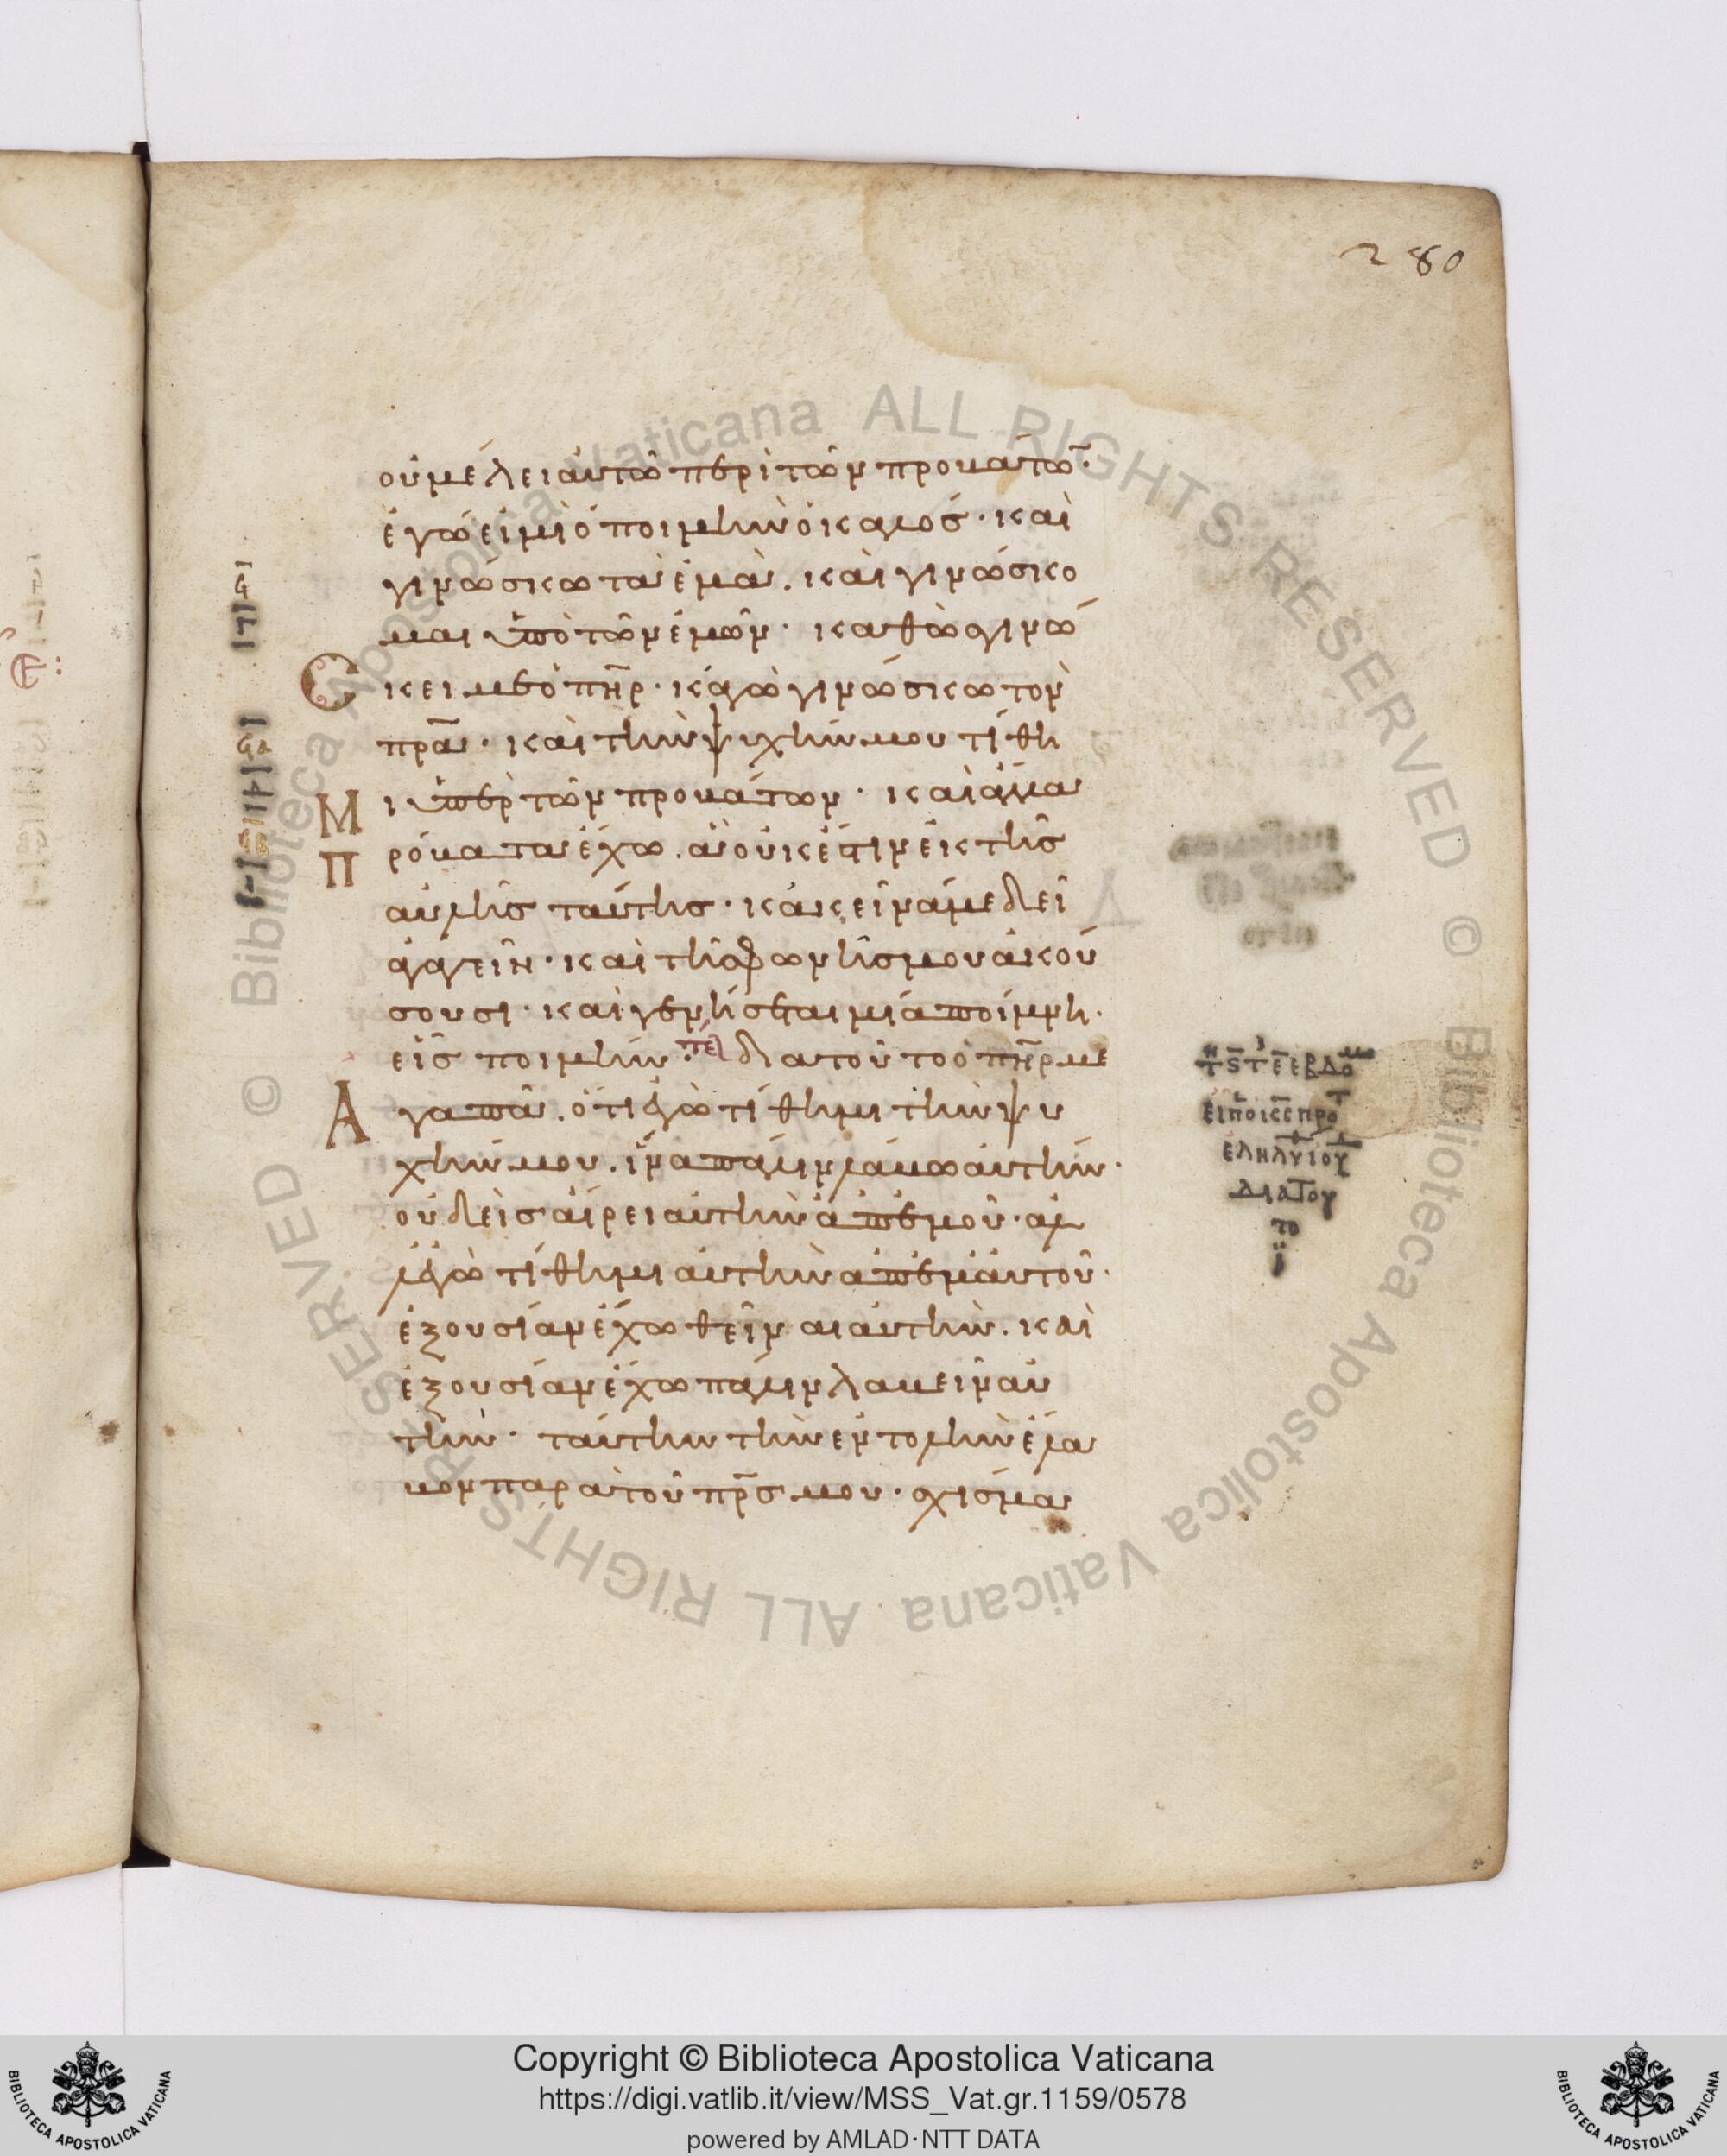 280
οὐ μέλει αὐτῶ περὶ τῶν προβάτω̄·
ἐγώ εἰμι ὁ ποιμὴν ὁ καλός· καὶ
γινώσκω τὰ ἐμὰ. καὶ γινώσκο
μαι ὑπὸ τῶν ἐμῶν· καθὼς γινώ
σκει με ὁ πη̄ρ· κἀγὼ γινώσκω τὸν
πρ̄α· καὶ τὴν ψυχήν μου τίθη
μι ὑπὲρ τῶν προβάτων· καὶ ἄλλα
πρόβατα ἔχω. ἃ οὐκ ἔστιν ἐκ τῆς
αὐλῆς ταύτης· κἀκεῖνά με δεῖ
ἀγαγεῖν· καὶ τῆς φωνῆς μου ἀκού
σουσι· καὶ γενήσεται μία ποίμνη·
εἷς ποιμήν· τελ διατοῦτο ὁ πη̄ρ με
ἀγαπᾶ. ὅτι ἐγὼ τίθημι τὴν ψυ
χήν μου. ἵνα πάλιν λάβω αὐτήν·
οὐδεὶς αἴρει αὐτὴν ἀπ' ἐμοῦ· ἀλ
λ' ἐγὼ τίθημι αὐτὴν ἀπ' ἐμαυτοῦ·
ἐξουσίαν ἔχω θεῖναι αὐτὴν. καὶ
ἐξουσίαν ἔχω πάλιν λαβεῖν αὐ
τήν· ταύτην τὴν ἐντολὴν ἔλα
βον παρὰ τοῦ πρ̄ς μου· σχίσμα
ΕΙΠΟΙΣΕΠΡΟ
ΕΛΗΛΥΙΟΥ
ΔΙΑΤΟΥ
ΤΟ
Copyright © Biblioteca Apostolica Vaticana
https://digi.vatlib.it/view/MSS_Vat.gr.1159/0578
powered by AMLAD·NTT DATA
BIBLIOTECA APOSTOLICA VATICANA
BIBLIOTECA APOSTOLICA VATICANA
© Biblioteca Apostolica Vaticana ALL RIGHTS RESERVED © Biblioteca Apostolica Vaticana ALL RIGHTS RESERVED